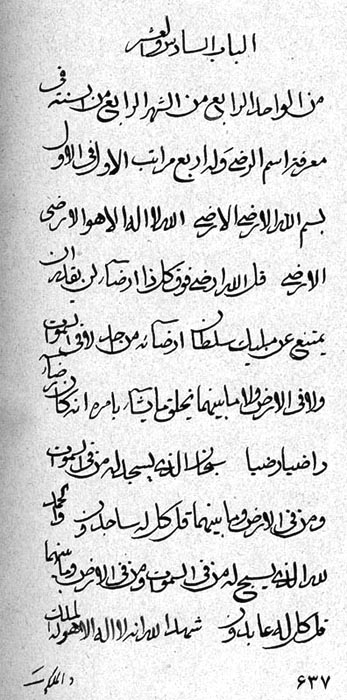 الباب السادس والعشر
من الواحد الرابع من الشهر الرابع من السنة فی
معرفة اسم الرضی وله اربع مراتب الاول فی الاول
بسم الله الارضی الارضی الله لا اله الا هو الارضی
الارضی قل الله ارضی فوق کل ذا ارضاء لن یقدر ان
یمتنع عن ملیک سلطان ارضائه من احد لا فی السموات
ولا فی الارض ولا ما بینهما یخلق ما یشاء بامره انه کان رضاء
راضیا رضیا سبحان الذی یسجد له من فی السموات
ومن فی الارض وما بینهما قل کل له ساجدون والحمد
لله الذی یسبح له من فی السموات ومن فی الارض وما بینهما
قل کل له عابدون شهد الله انه لا اله الا هو له الملک
والملکوت
۶۳۷